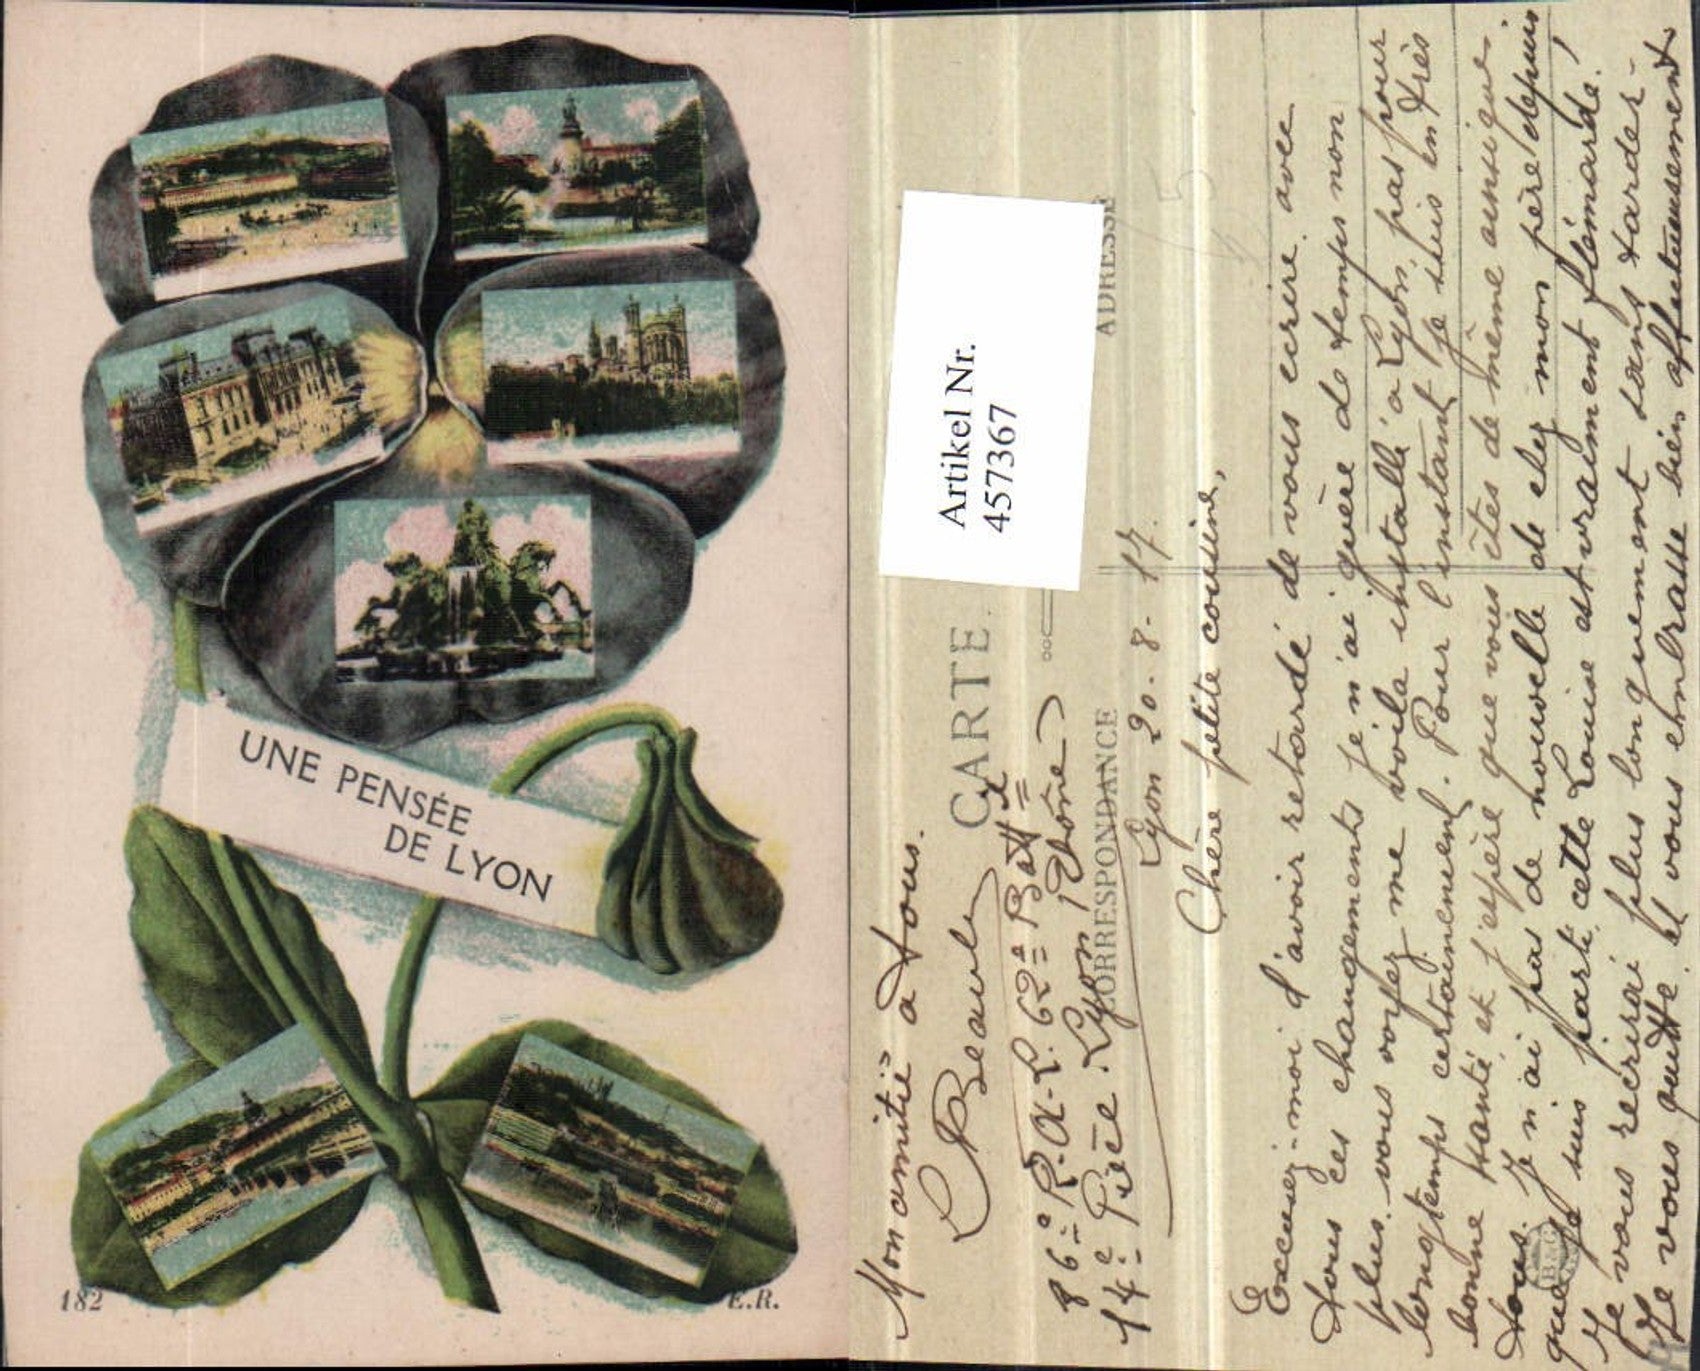 UNE PENSÉE
DE LYON
182
E.R.
Artikel Nr.
4573367
CARTE
CORRESPONDANCE
ADRESSE
Lyon 20. 8. 17.
Chère petite cousine,
Excusez-moi d'avoir retardé de vous écrire avec
tous ces changements je n'ai guère de temps non
plus. vous voyez me voila installé à Lyon, pas pour
longtemps certainement. Pour l'instant je suis en très
bonne santé et j'espère que vous êtes de même ainsi que
tous. Je n'ai pas de nouvelle de chez mon père depuis
que je suis parti cette Louise est vraiment flémarde!
Je vous recrirai plus longuement sans tarder-
Je vous quitte et vous embrasse bien affectueusement
Mon amitié à tous.
Beaule
86e R.A.L. 62e Batt
14e Pièce. Lyon Rhône
B&G